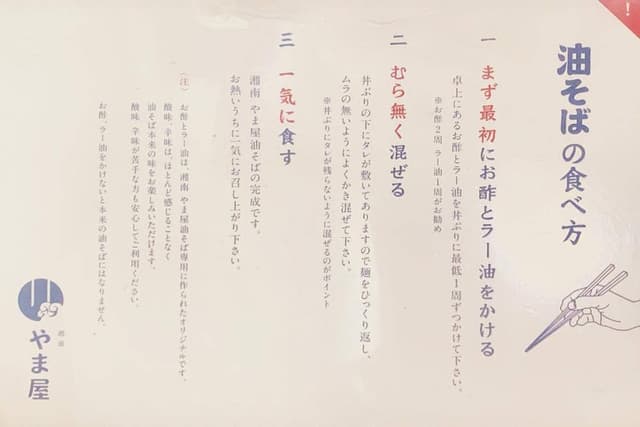 油そばの食べ方
一 まず最初にお酢とラー油をかける
卓上にあるお酢とラー油を丼ぶりに最低1周ずつかけて下さい。
※お酢2周 ラー油1周がお勧め
二 むら無く混ぜる
丼ぶりの下にタレが敷いてありますので麺をひっくり返し、
ムラの無いようによくかき混ぜて下さい。
※丼ぶりにタレが残らないように混ぜるのがポイント
三 一気に食す
湘南 やま屋油そばの完成です。
お熱いうちに一気にお召し上がり下さい。
(注) お酢とラー油は、湘南 やま屋油そば専用に作られたオリジナルです。
酸味、辛味は、ほとんど感じることなく
油そば本来の味をお楽しみいただけます。
酸味、辛味が苦手な方も安心してご利用ください。
お酢、ラー油をかけないと本来の油そばにはなりません。
湘南
やま屋
!